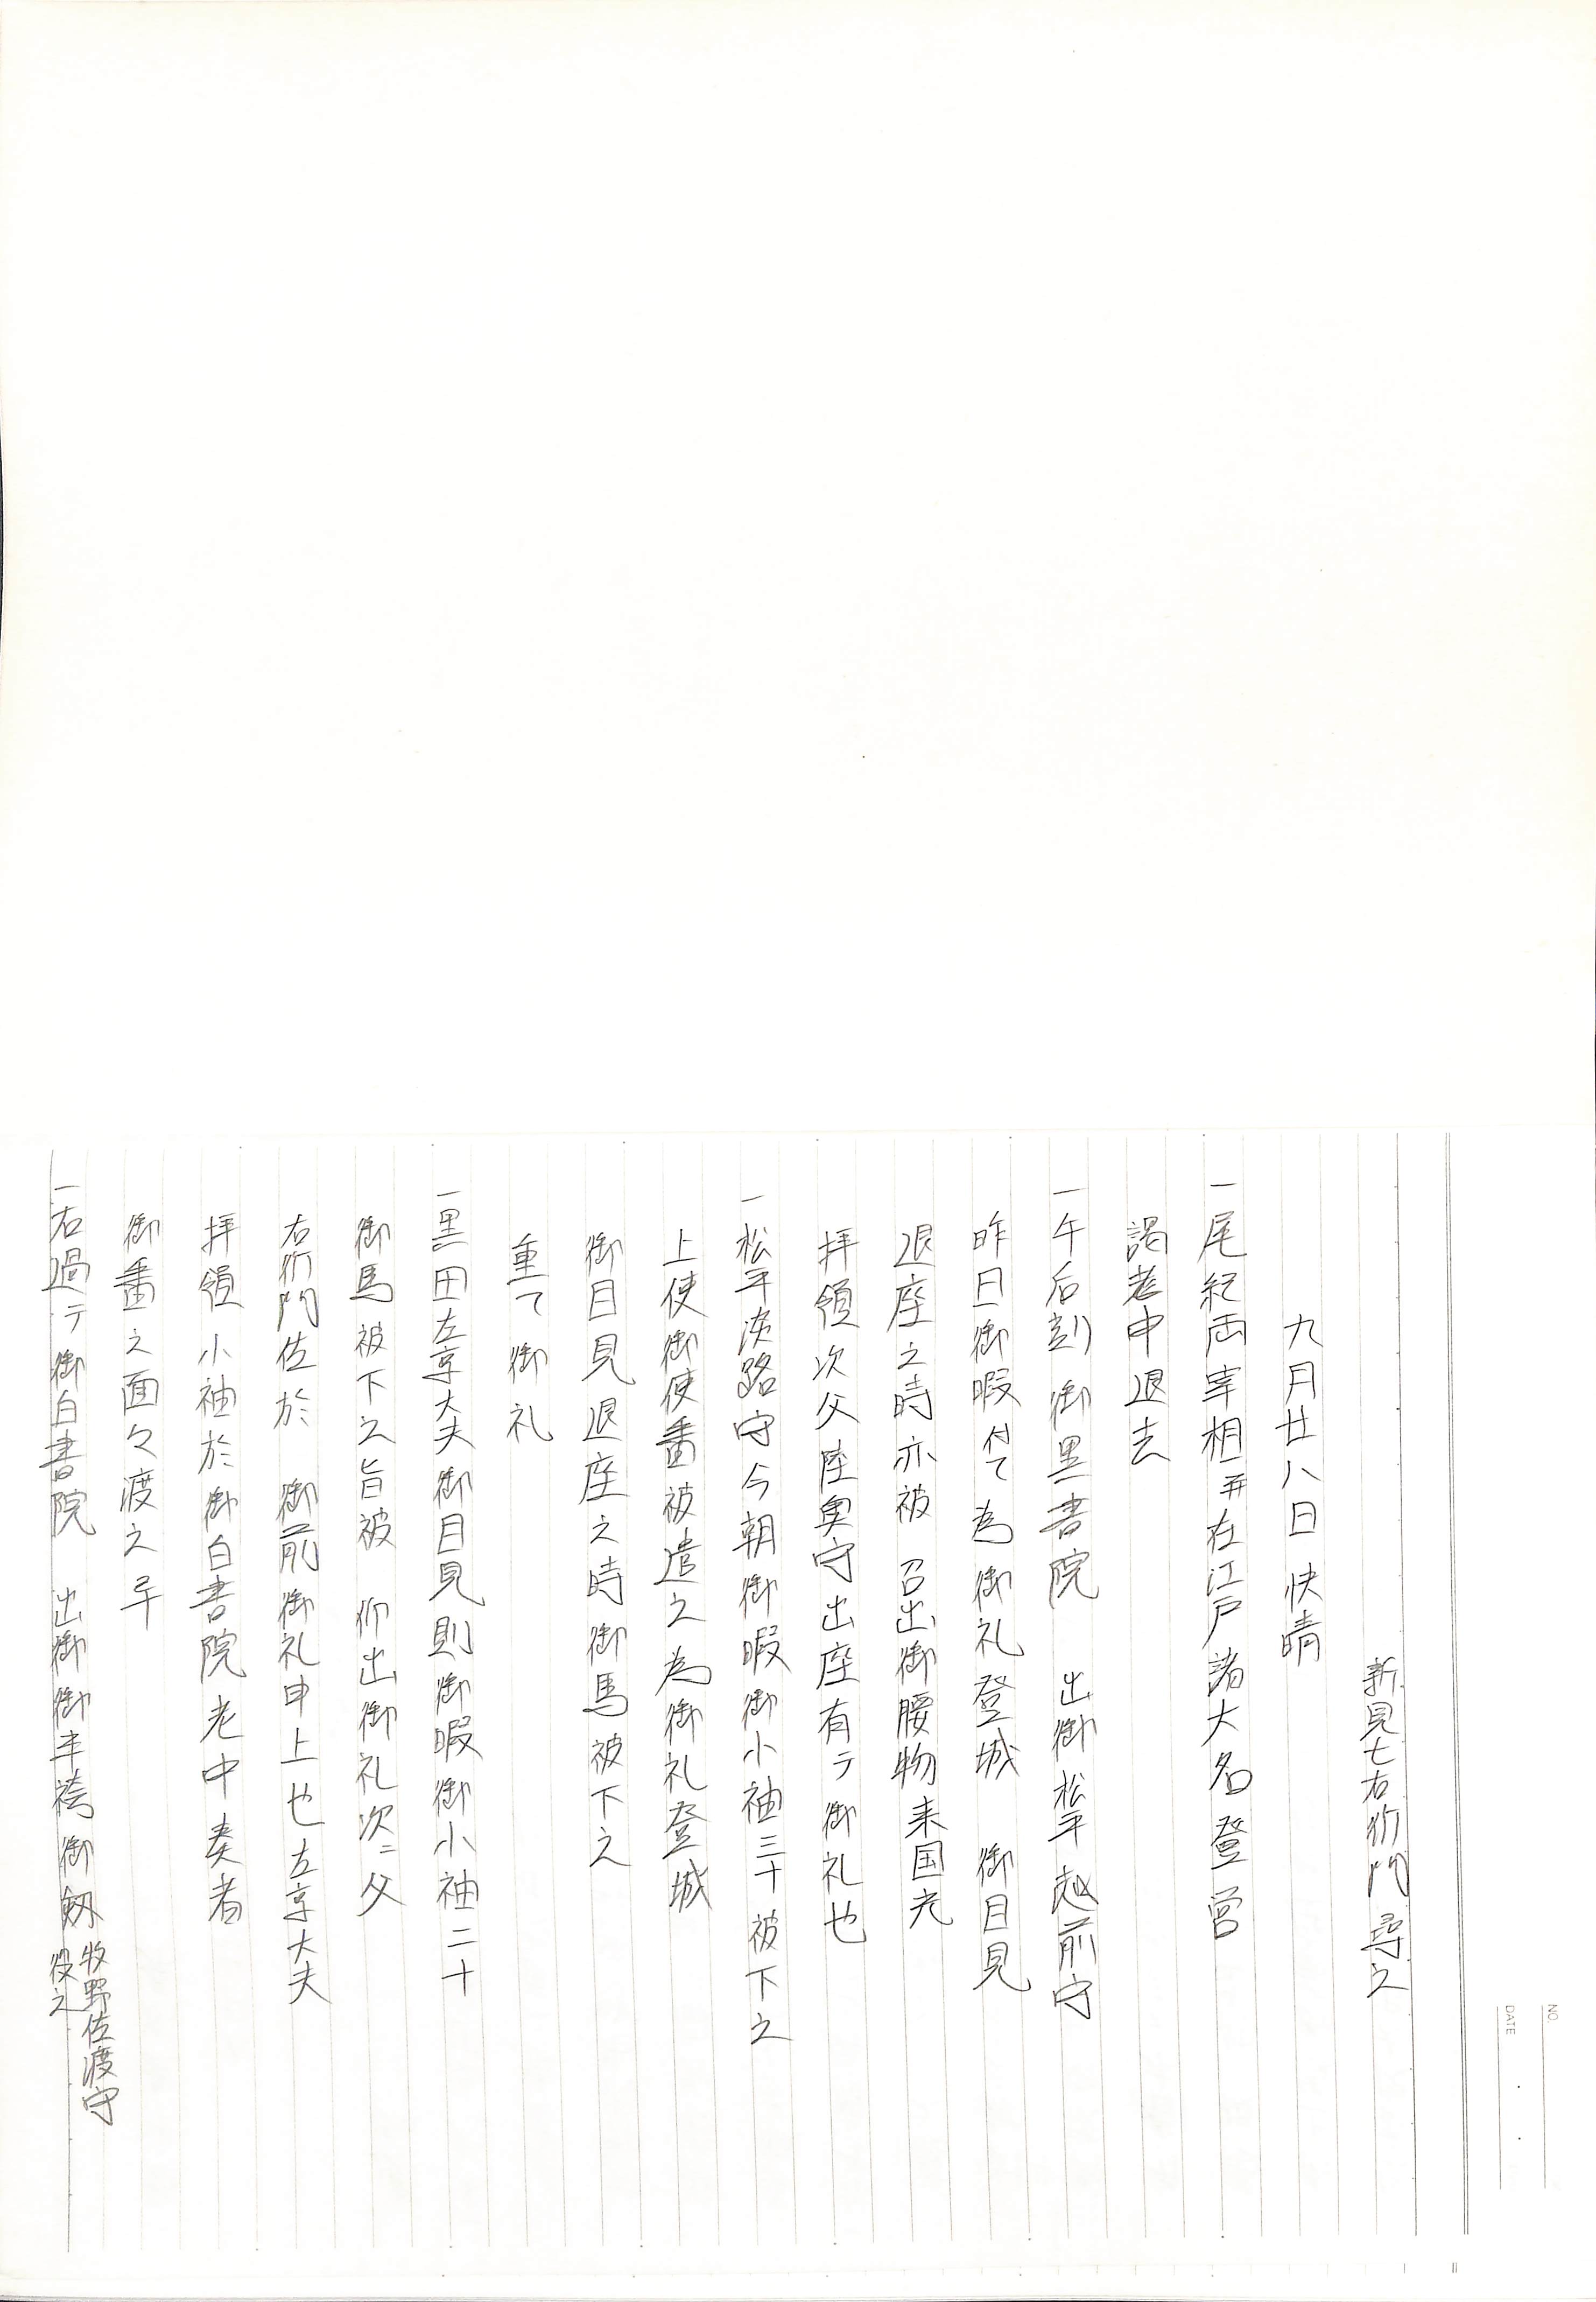 新見七右衛門尋之
九月廿八日 快晴
一尾紀両宰相并在江戸諸大名登営
謁老中退去
一午后刻御黒書院 出御松平越前守
昨日御暇付て為御礼登城 御目見
退座之時亦被 召出御腰物来国光
拝領次父陸奥守出座有テ御礼也
一松平淡路守今朝御暇御小袖三十被下之
上使御使番被遣之為御礼登城
御目見退座之時御馬被下之
重て御礼
一黒田左京大夫御目見則御暇御小袖二十
御馬被下之旨被 仰出御礼次ニ父
右衛門佐於 御前御礼申上也左京大夫
拝領小袖於御白書院老中奏者
御番之面々渡之
一右過テ御白書院 出御御半袴御剱牧野佐渡守
役之
NO.
DATE